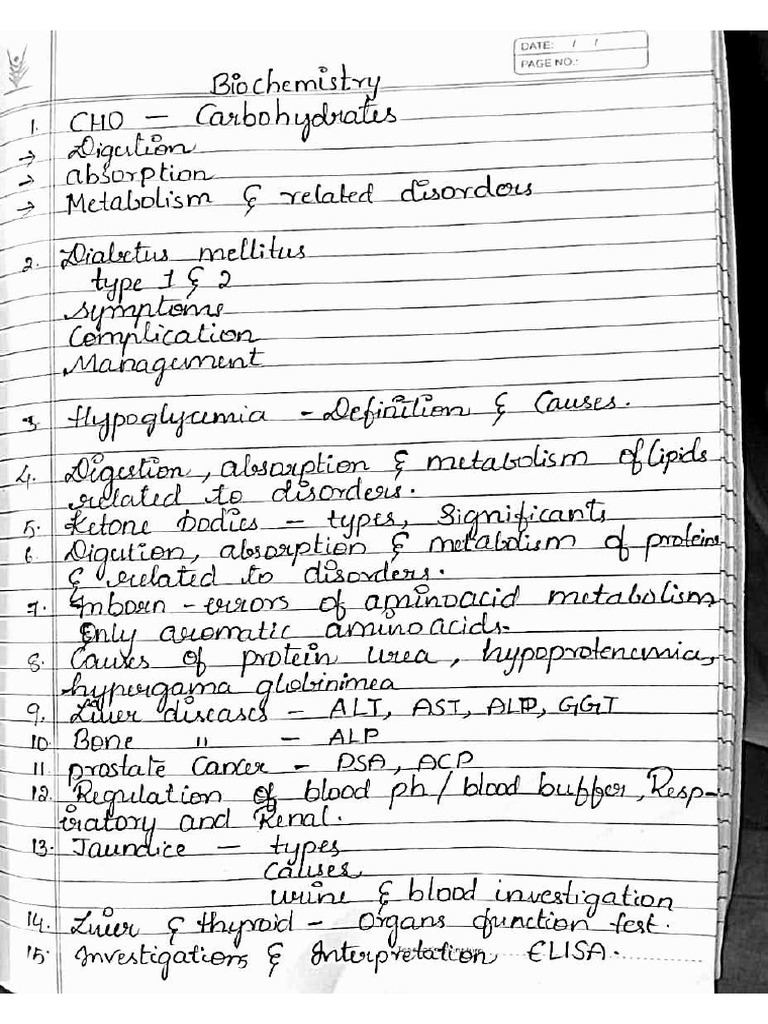 DATE: / /
PAGE NO.:
Biochemistry
1. CHO — Carbohydrates
→ Digestion
→ absorption
→ Metabolism & related disorders
2. Diabetus mellitus
type 1 & 2
Symptoms
Complication
Management
3. Hypoglycemia - Definition & Causes.
4. Digestion, absorption & metabolism of lipids
related to disorders.
5. Ketone bodies - types, Significants
6. Digestion, absorption & metabolism of proteins
& related to disorders.
7. Inborn - errors of aminoacid metabolism
Only aromatic aminoacids.
8. Causes of protein urea, hypoprotenemia,
hypergama globinimea
9. Liver diseases - ALT, AST, ALP, GGT
10. Bone " - ALP
11. prostate Cancer - PSA, ACP
12. Regulation of blood ph / blood buffer, Resp-
iratory and Renal.
13. Jaundice - types
causes
urine & blood investigation
14. Liver & thyroid - Organs function test.
15. Investigations & Interpretation ELISA.